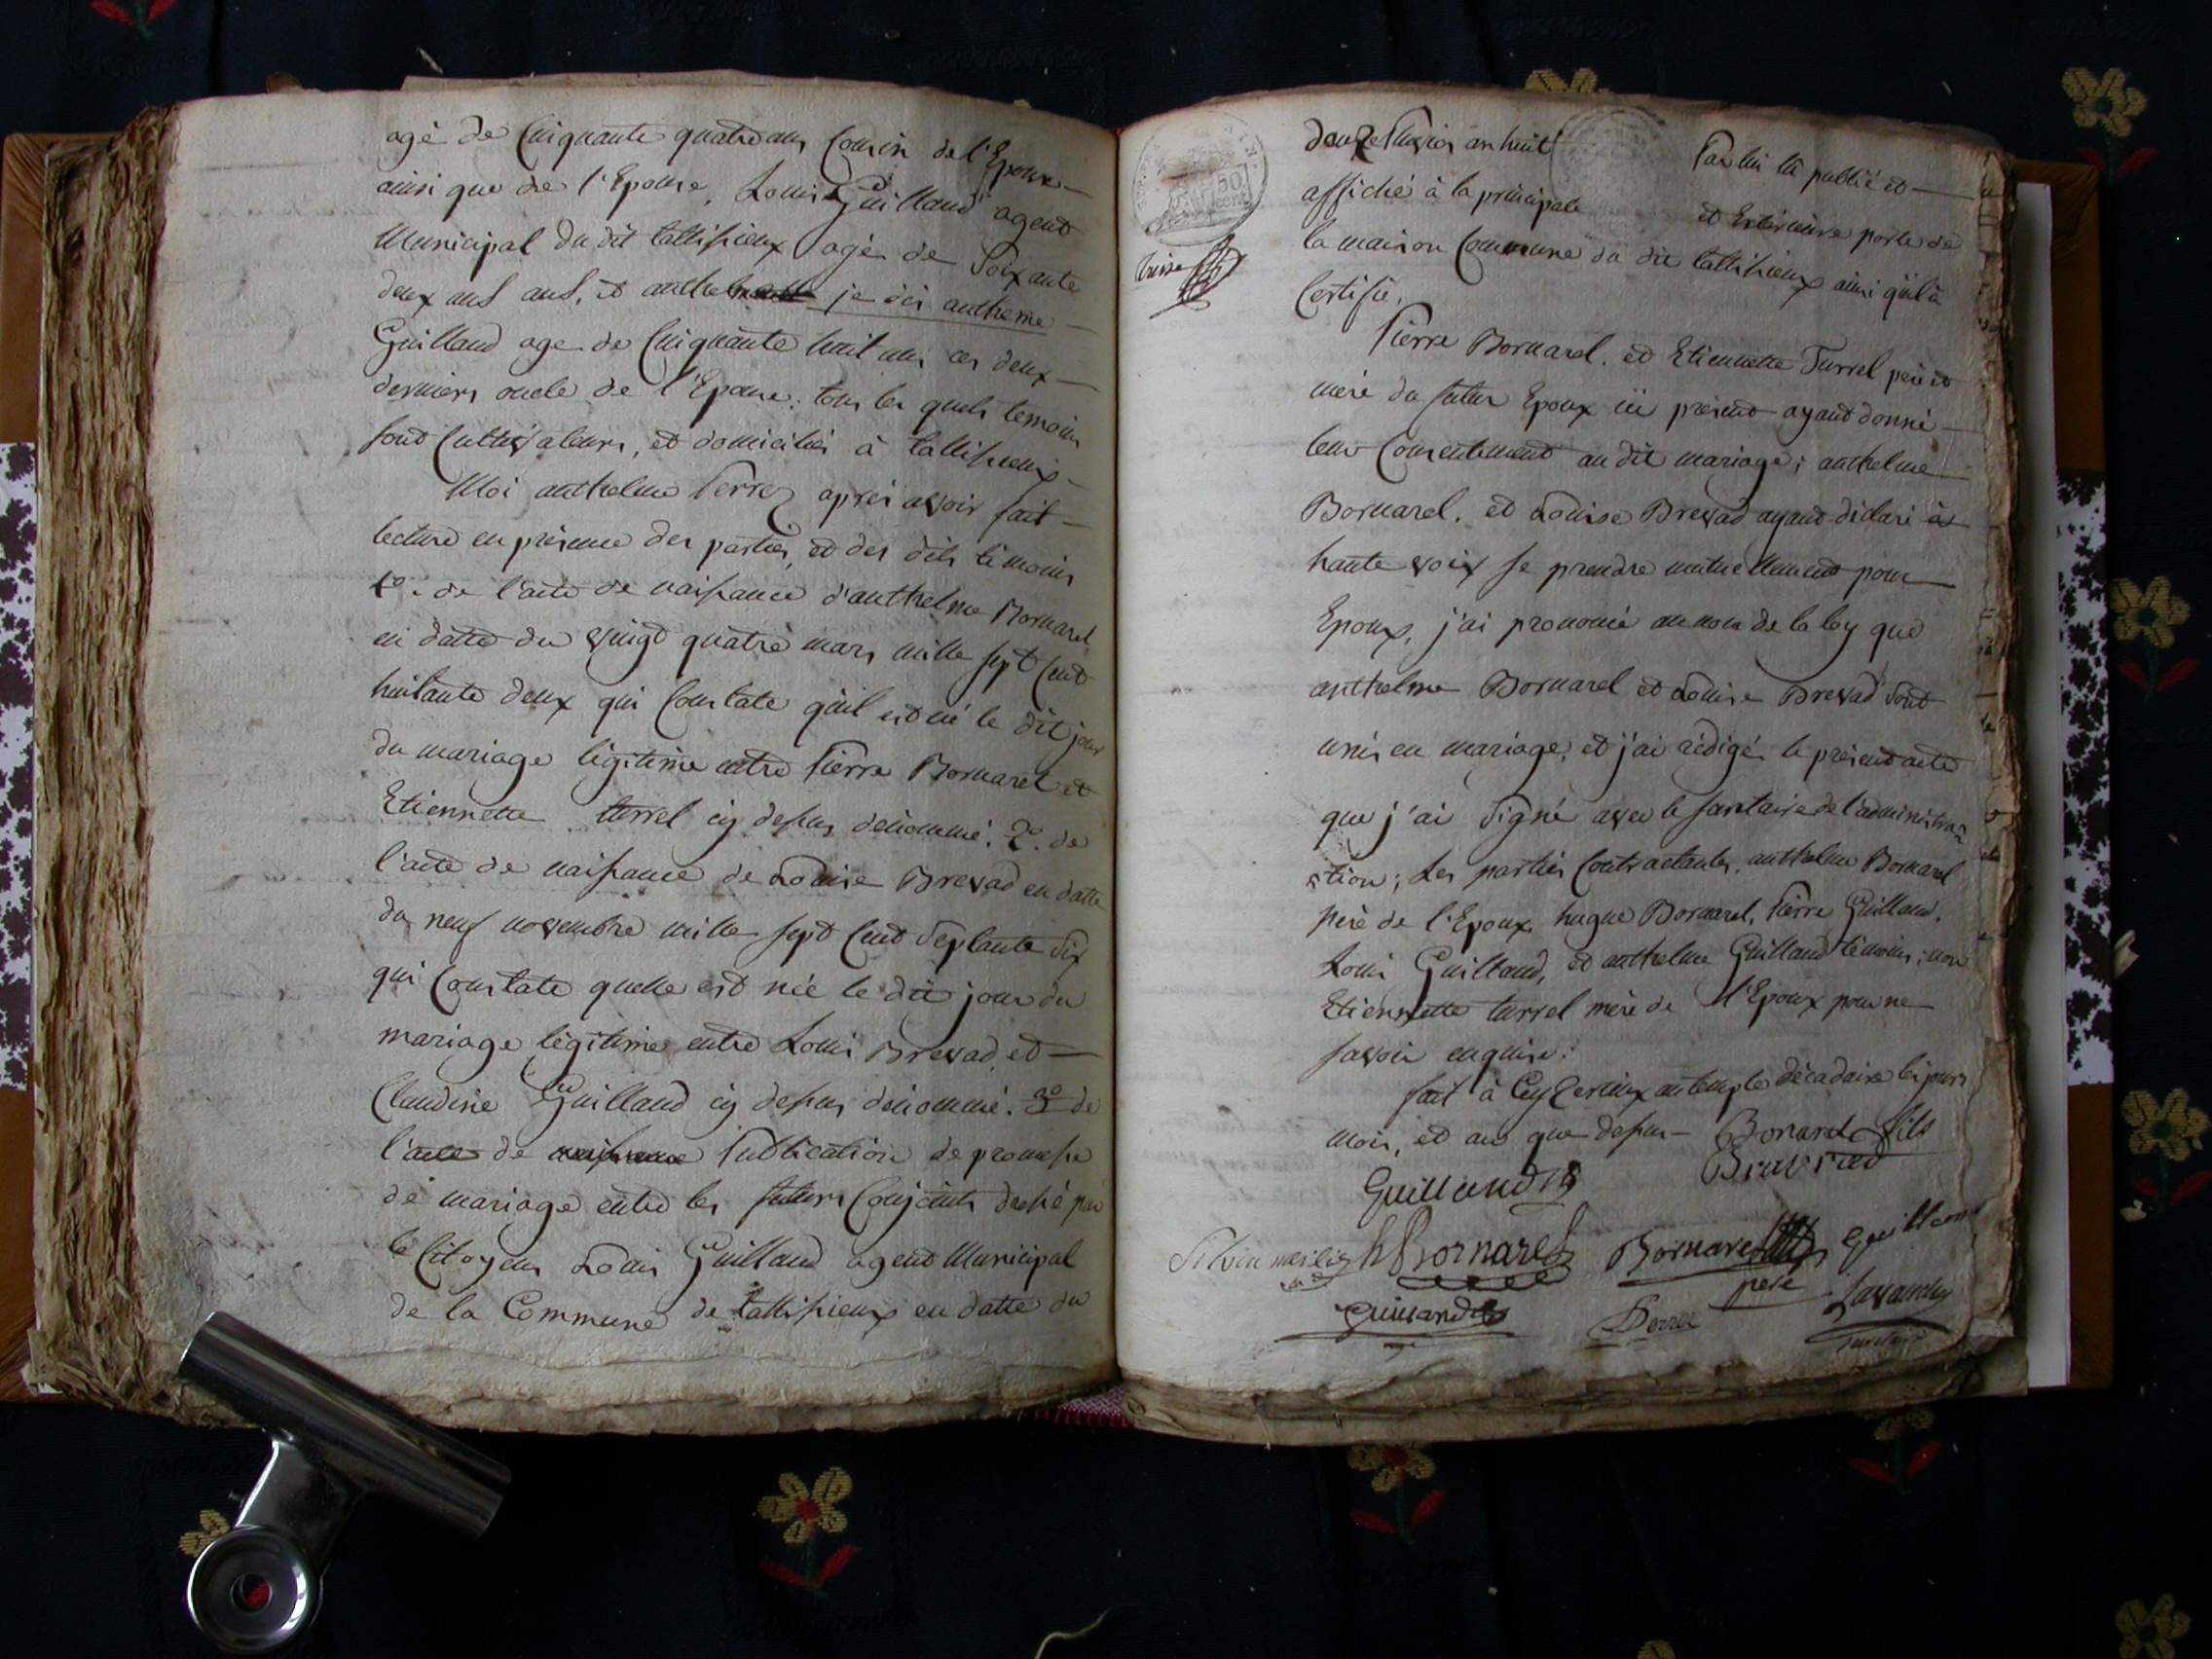 agé de Cinquante quatre ans Cousin de l'Epoux
ainsi que de l'Epouse, Louis Guilland agent
Municipal du dit tallissieux agé de Soixante
deux ans ans, et anthelme je dis anthelme
Guilland age de Cinquante huit ans ces deux
derniers oncle de l'Epouse; tous les quels temoins
sont Cultivateurs, et domiciliés à tallissieux
Moi anthelme Perret après avoir fait
lecture en présence des parties, et des dits témoins
1º. de l'acte de naissance d'anthelme Bornarel
en datte du vingt quatre mars mille sept Cent
huitante deux qui Constate qu'il est né le dit jour
du mariage légitime entre Pierre Bornarel et
Etiennette turrel cy dessus dénommé. 2º. de
l'acte de naissance de Louise Brevad en datte
du neuf novembre mille sept Cent Septante Six
qui Constate quelle est née le dit jour du
mariage légitime entre Louis Brevad, et
Claudine Guilland cy dessus dénommé. 3º de
l'acte de naissance Publication de promesse
de mariage entre les futurs Conjoints dressé par
le Citoyen Louis Guilland agent Municipal
de la Commune de tallissieux en datte du
douze an huit Par lui lû publié et
affiché à la principale et Extérieure porte de
la maison Commune du dit tallissieux ainsi qu'il a
Certifié,
Pierre Bornarel. et Etiennette Turrel père et
mère du futur Epoux ici présent ayant donné
leur Consentement au dit mariage; anthelme
Bornarel. et Louise Brevad ayant déclaré à
haute voix se prendre mutuellement pour
Epoux, j'ai prononcé au nom de la loy que
anthelme Bornarel et Louise Brevad Sont
unis en mariage, et j'ai rédigé le présent acte
que j'ai Signé avec le secretaire de l'administra
tion; Les parties Contractantes, anthelme Bornarel
père de l'Epoux, hugue Bornarel, Pierre Guilland,
Louis Guilland, et anthelme Guilland témoins; non
Etiennette turrel mère de l'Epoux pour ne
savoir enquise:
fait à Ceyzerieux au temple décadaire les jours
mois, et an que dessus Bonarel fils
Guilland
h Bornarel Bornarel Guilland
père
Perret